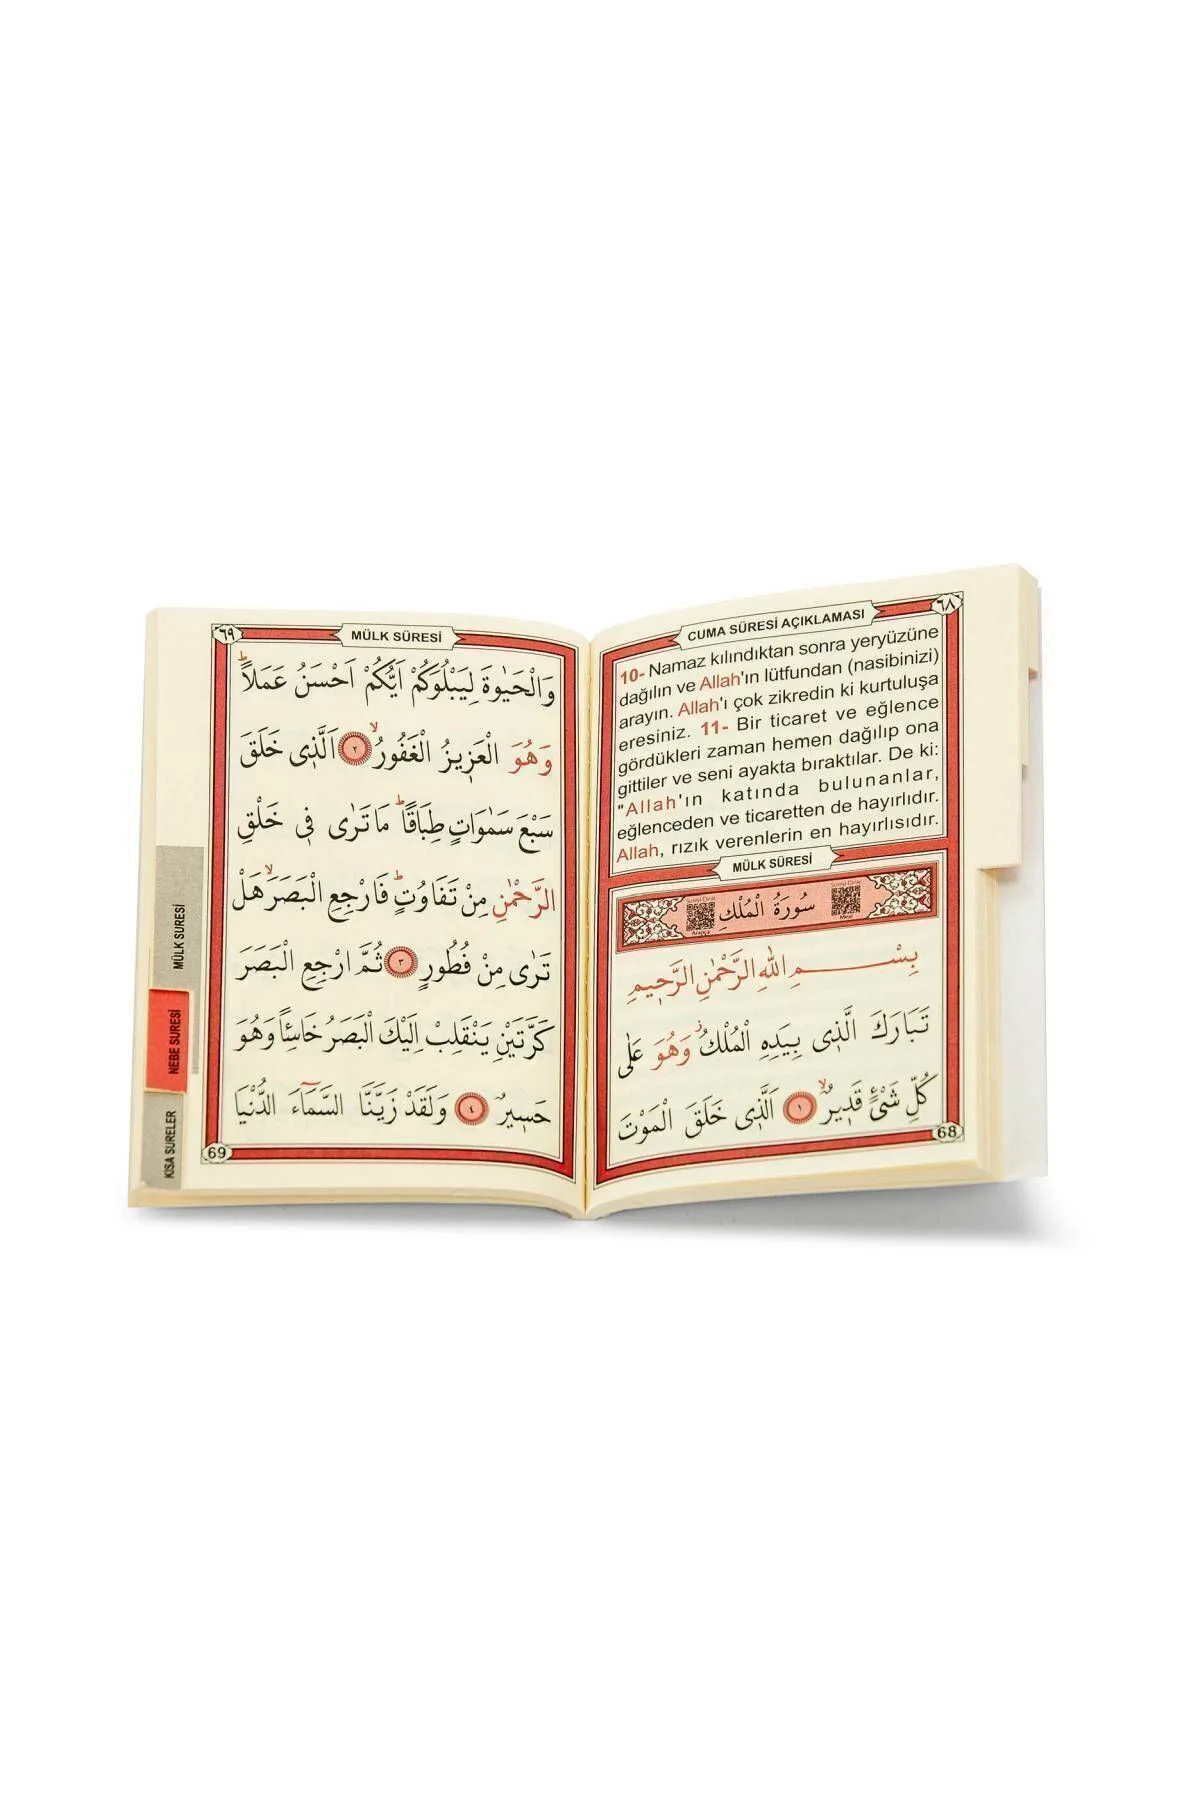 ٦٨
CUMA SÛRESİ AÇIKLAMASI
10- Namaz kılındıktan sonra yeryüzüne
dağılın ve Allah'ın lütfundan (nasibinizi)
arayın. Allah'ı çok zikredin ki kurtuluşa
eresiniz. 11- Bir ticaret ve eğlence
gördükleri zaman hemen dağılıp ona
gittiler ve seni ayakta bıraktılar. De ki:
"Allah'ın katında bulunanlar,
eğlenceden ve ticaretten de hayırlıdır.
Allah, rızık verenlerin en hayırlısıdır.
MÜLK SÛRESİ
سُورَةُ الْمُلْكِ
بِسْمِ اللهِ الرَّحْمٰنِ الرَّحٖيمِ
تَبَارَكَ الَّذٖى بِيَدِهِ الْمُلْكُ وَهُوَ عَلٰى
كُلِّ شَىْءٍ قَدٖيرٌ ١ اَلَّذٖى خَلَقَ الْمَوْتَ
68
٦٩
MÜLK SÛRESİ
وَالْحَيٰوةَ لِيَبْلُوَكُمْ اَيُّكُمْ اَحْسَنُ عَمَلاً
وَهُوَ الْعَزٖيزُ الْغَفُورُ ٢ اَلَّذٖى خَلَقَ
سَبْعَ سَمٰوَاتٍ طِبَاقًا مَا تَرٰى فٖى خَلْقِ
الرَّحْمٰنِ مِنْ تَفَاوُتٍ فَارْجِعِ الْبَصَرَ هَلْ
تَرٰى مِنْ فُطُورٍ ٣ ثُمَّ ارْجِعِ الْبَصَرَ
كَرَّتَيْنِ يَنْقَلِبْ اِلَيْكَ الْبَصَرُ خَاسِئًا وَهُوَ
حَسٖيرٌ ٤ وَلَقَدْ زَيَّنَّا السَّمَٓاءَ الدُّنْيَا
69
MÜLK SURESİ
NEBE SURESİ
KISA SURELER